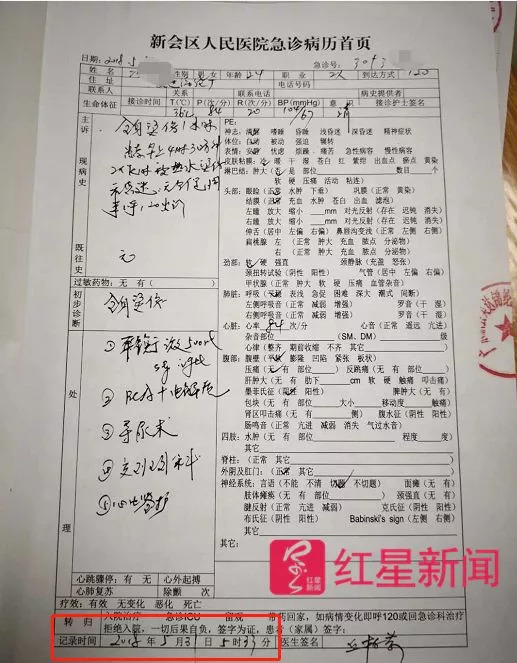 新会区人民医院急诊病历首页
日期: 2018.5 急诊号: 3093
姓名 性别 男 女 年龄 24 职业 工人 到达方式 120
住址 电话号码
联系人 关系 联系电话 病史提供者
生命体征 接诊时间 T(℃) P(次/分) R(次/分) BP(mmHg) 意识 接诊护士签名
36² 84 20 104/67 清
主诉
全身烫伤1小时
现病史
患者早上4时30分
既往史
无
过敏药物: 无 有( )
初步诊断
全身烫伤
处理
① 平衡液500ml
② BG分+电解质
③ 导尿术
④ 交到烧伤科
⑤ 心电监护
心跳骤停: 有 无 心外起搏
心肺复苏 除颤 次
PE:
神志: 清醒 嗜睡 昏睡 浅昏迷 深昏迷 精神症状
体位: 自动 被动 强迫 辗转
表情: 安静 忧虑 烦躁 痛苦 急性病容 慢性病容
皮肤黏膜: 冷 暖 干 湿 苍白 红 紫绀 出血点 瘀点 黄染
淋巴结: 肿大(否 是 部位 数目 个
软 硬 压痛 活动 粘连)
头部: 眼睑(正常 水肿 下垂) 巩膜(正常 黄染)
结膜(正常 充血 水肿 苍白 出血 滤泡)
左瞳 放大 缩小 mm 对光反射(存在 迟钝 消失)
右瞳 放大 缩小 mm 对光反射(存在 迟钝 消失)
伸舌(居中 左偏 右偏) 鼻唇沟变浅(正常 左侧 右侧)
扁桃腺 左 (正常 肿大 充血 脓点 分泌物)
右 (正常 肿大 充血 脓点 分泌物)
颈部: 软 硬 强直 颈静脉(充盈 怒张)
颈扭转试验(阴性 阳性) 气管(居中 左偏 右偏)
甲状腺(正常 肿大 软 硬 压痛 血管杂音)
肺脏: 呼吸(平稳 表浅 急促 困难 深大 潮式 间断)
左侧呼吸音(正常 减弱 增强) 罗音(干 湿)
右侧呼吸音(正常 减弱 增强) 罗音(干 湿)
心脏: 心率 84 次/分 心音(正常 遥远 亢进)
杂音部位 (SM、DM) 级
心律(整齐 期前收缩 不齐 其它 )
腹部: 腹壁(平软 膨隆 凹陷 紧张 板状)
压痛(无 有 部位 ) 反跳痛(无 有 部位 )
肝肿大(无 有 肋下 cm 软 硬 触痛 叩击痛)
墨菲氏征(阴性 阳性) 脾肿大(无 有)
包块(无 有 部位 大小 移动度 触痛)
肾区叩击痛(无 有 侧) 腹水征(阴性 阳性)
肠鸣音(正常 亢进 减弱 消失 气过水音)
四肢: 水肿(无 有 部位 程度 度)
其它
脊柱: (正常 其它 )
外阴及肛门: (正常 其它 )
神经系统: 言语(不能 不清 切题 不切题) 面瘫(无 有)
肢体瘫痪(无 有 部位 ) 颈强直(无 有)
腱反射(正常 亢进 减弱) 克氏征(阴性 阳性)
布氏征(阴性 阳性) Babinski's sign(左侧 右侧)
其它:
其它:
红星新闻
疗效: 有效 无变化 恶化 死亡
转归 入院治疗 急诊ICU 留观 带药回家, 如病情变化即呼120或回急诊科治疗
拒绝入院, 一切后果自负, 签字为证, 患者(家属)签字:
记录时间 2018年5月3日5时33分 医生签名